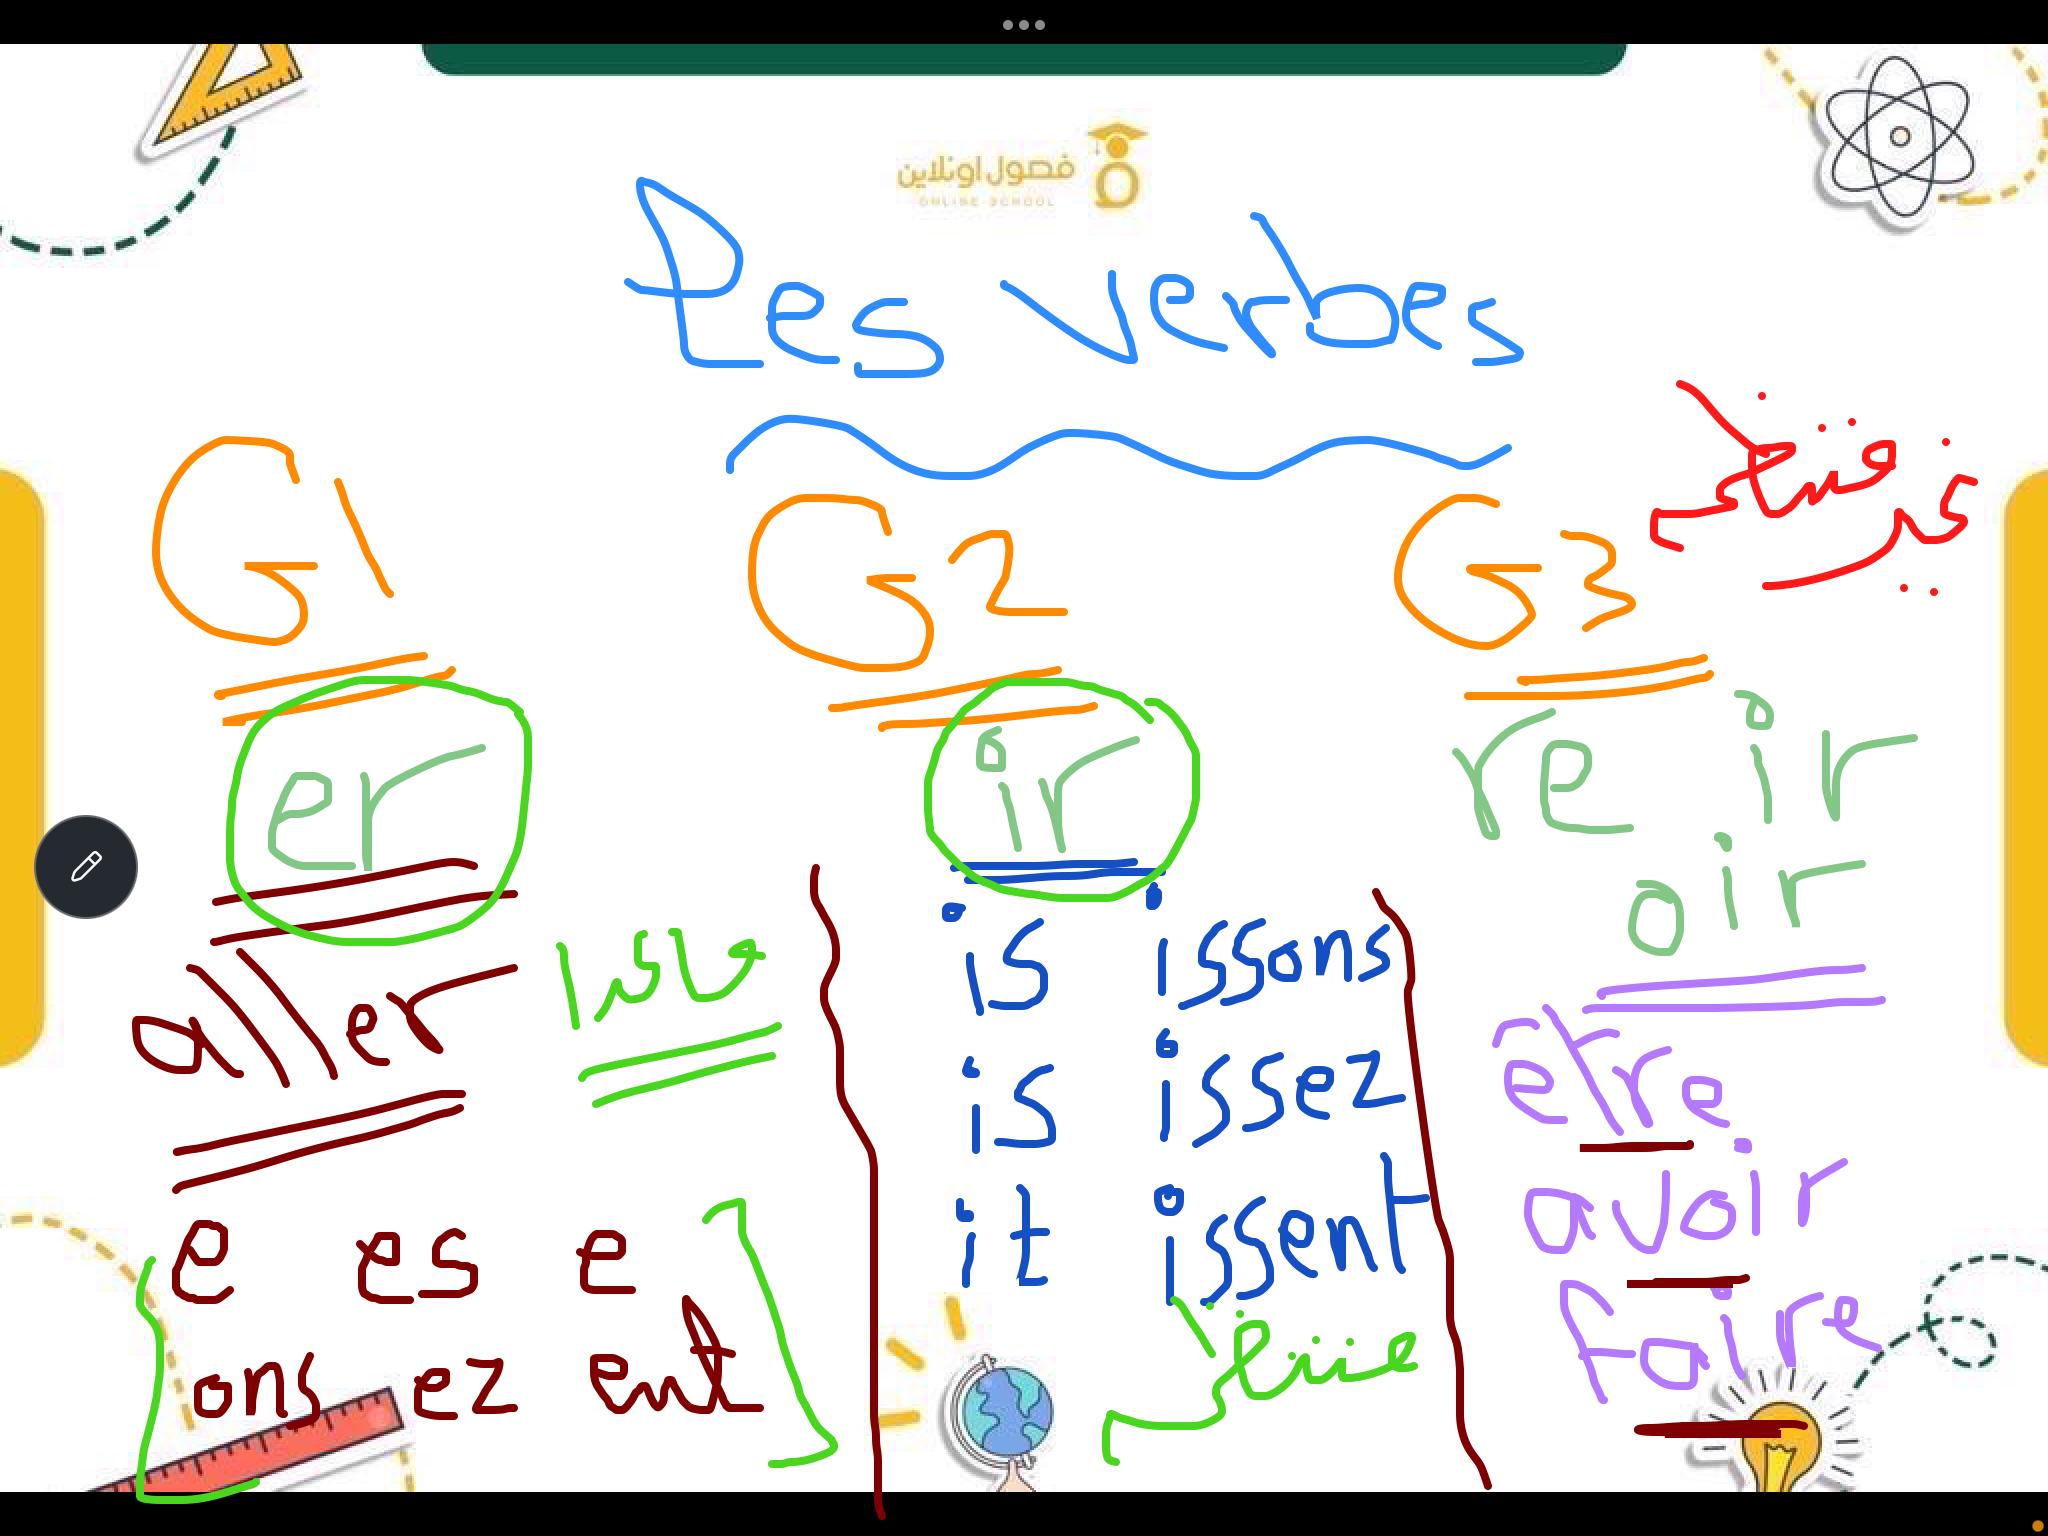 فصول اونلاين
ONLINE SCHOOL
Les verbes
G1 G2 G3
غير منتظم
er ir re ir
oir
aller
is issons
is issez
it issent
être
avoir
faire
e es e
ons ez ent